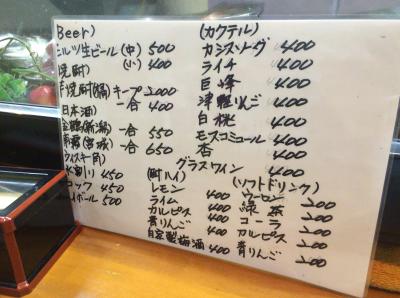 Beer)
ミルツ生ビール(中) 500
(小) 400
焼酎)
芋焼酎(鍋)キープ 2000
一合 400
日本酒)
金鶴(新潟) 一合 550
一合 650
ウイスキー角)
水割り 450
ロック 450
ハイボール 500
(カクテル)
カシスソーダ 400
ライチ 400
巨峰 400
津軽りんご 400
白桃 400
モスコミュール 400
杏 400
グラスワイン 400
(酎ハイ)
レモン 400
ライム 400
カルピス 400
青りんご 400
自家製梅酒 400
(ソフトドリンク)
ウーロン 200
緑茶 200
コーラ 200
カルピス 200
青りんご 200